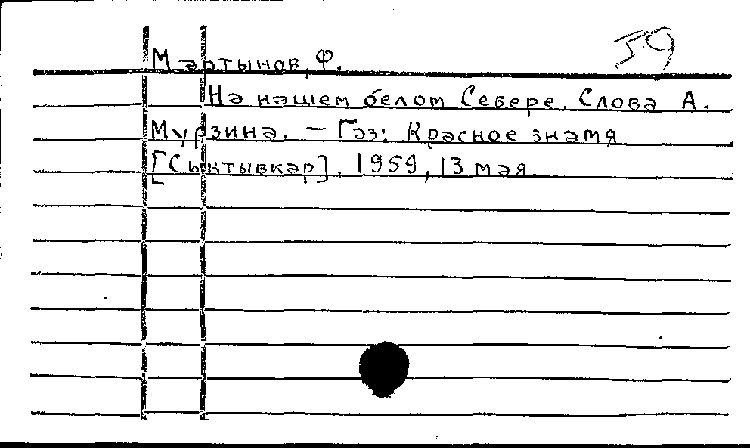 59
Мартынов, Ф.
На нашем белом Севере. Слова А.
Мурзина. – Газ: Красное знамя
[Сыктывкар], 1959, 13 мая.